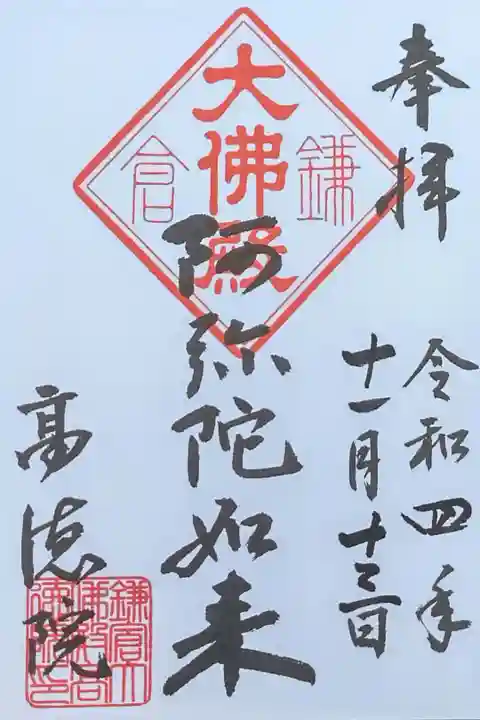 奉拝
令和四年
十一月十三日
鎌倉
大佛殿
阿弥陀如来
高徳院